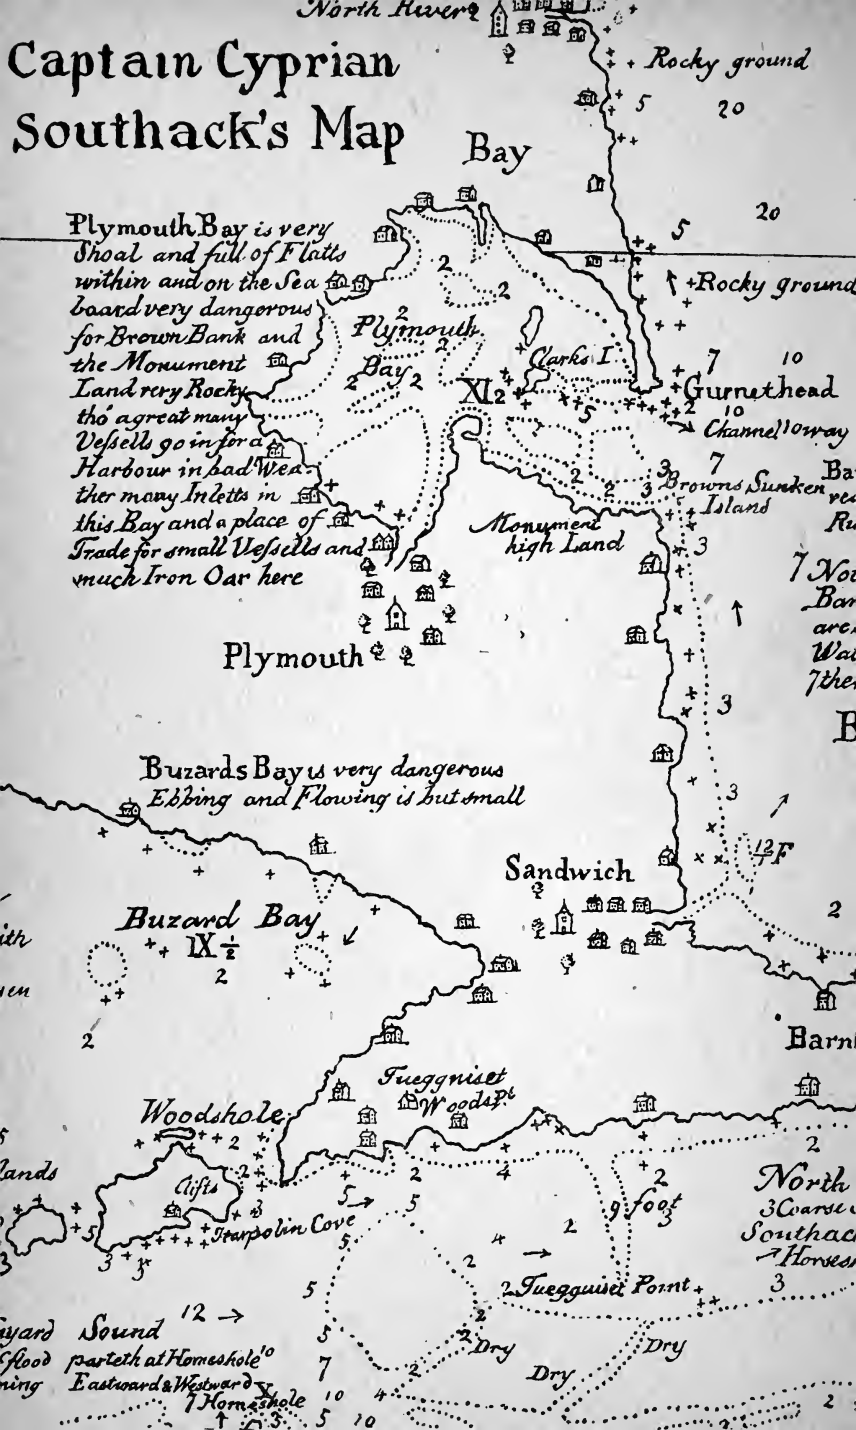 North River
Captain Cyprian
Southack's Map
Bay
Rocky ground
5
20
20
5
Plymouth Bay is very
Shoal and full of Flatts
within and on the Sea
board very dangerous
for Brown Bank and
the Monument
Land very Rocky
tho' a great many
Vessells go in for a
Harbour in bad Wea-
ther many Inletts in
this Bay and a place of
Trade for small Vessells and
much Iron Oar here
2
2
Rocky ground
2
Plymouth
2
Bay
2
2
Clarks I
7
10
XI2
5
Gurnethead
2
10
Channell 10 way
7
2
2
3
3
Browns Sunken
Island
Monument
high Land
3
7
Bar
Plymouth
3
Buzards Bay is very dangerous
Ebbing and Flowing is but small
3
12/1 F
Sandwich
2
Buzard Bay
IX 1/2
2
2
Barn
Tueggniset
Woods Pt
Woodshole
2
lands
Clifts
2
3
5
3
3
Tarpolin Cove
5
2
4
5
5
9 foot
2
3
2
4
2
2
North
3 Coarse
Southac
Horsesh
2 Tuegguiset Point
3
5
yard Sound
12
flood parteth at Homeshole
10
ning Eastward & Westward
X
7 Homeshole
5
7
2
2
2
4
Dry
Dry
Dry
10
3
5
10
2
2